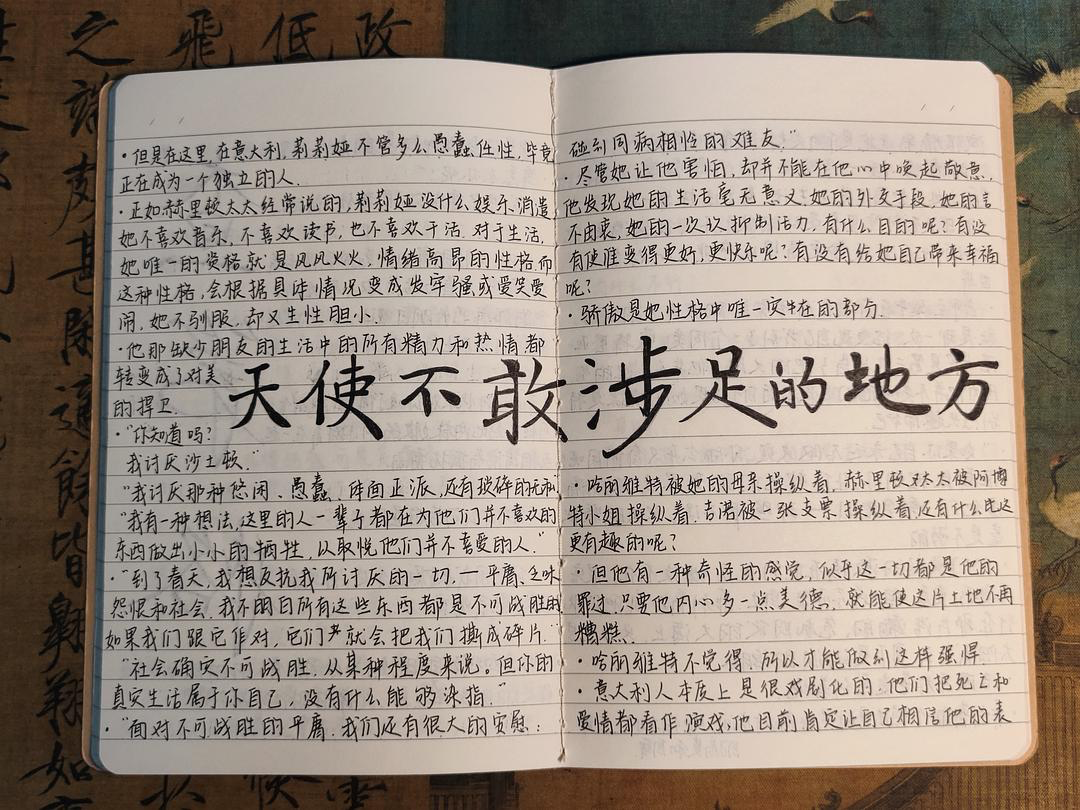 ·但是在这里,在意大利,莉莉娅不管多么愚蠢任性,毕竟
正在成为一个独立的人.
·正如赫里顿太太经常说的,莉莉娅没什么娱乐消遣
她不喜欢音乐,不喜欢读书,也不喜欢干活.对于生活,
她唯一的资格就是风风火火,情绪高昂的性格.而
这种性格,会根据具体情况变成发牢骚或爱笑爱
闹,她不驯服,却又生性胆小.
·他那缺少朋友的生活中的所有精力和热情都
转变成了对美
的捍卫.
·"你知道吗?
我讨厌沙士顿."
"我讨厌那种悠闲、愚蠢、体面正派,还有琐碎的无私
"我有一种想法,这里的人一辈子都在为他们并不喜欢的
东西做出小小的牺牲,以取悦他们并不喜爱的人."
·"到了春天,我想反抗我所讨厌的一切,——平庸、乏味
怨恨和社会.我不明白所有这些东西都是不可战胜的
如果我们跟它作对,它们就会把我们撕成碎片."
"社会确实不可战胜.从某种程度来说。但你的
真实生活属于你自己,没有什么能够染指."
·"面对不可战胜的平庸.我们还有很大的安慰:
天使不敢涉足的地方
碰到同病相怜的难友."
·尽管她让他害怕,却并不能在他心中唤起敬意,
他发现她的生活毫无意义.她的外交手段,她的言
不由衷,她的一次次抑制活力,有什么目的呢?有没
有使谁变得更好,更快乐呢?有没有给她自己带来幸福
呢?
·骄傲是她性格中唯一实在的部分.
·哈丽雅特被她的母亲操纵着,赫里顿太太被阿博
特小姐操纵着.吉诺被一张支票操纵着,还有什么比这
更有趣的呢?
·但他有一种奇怪的感觉,似乎这一切都是他的
罪过,只要他内心多一点美德,就能使这片土地不再
糟糕.
·哈丽雅特不觉得,所以才能做到这样强悍.
·意大利人本质上是很戏剧化的.他们把死亡和
爱情都看作演戏,他目前肯定让自己相信他的表